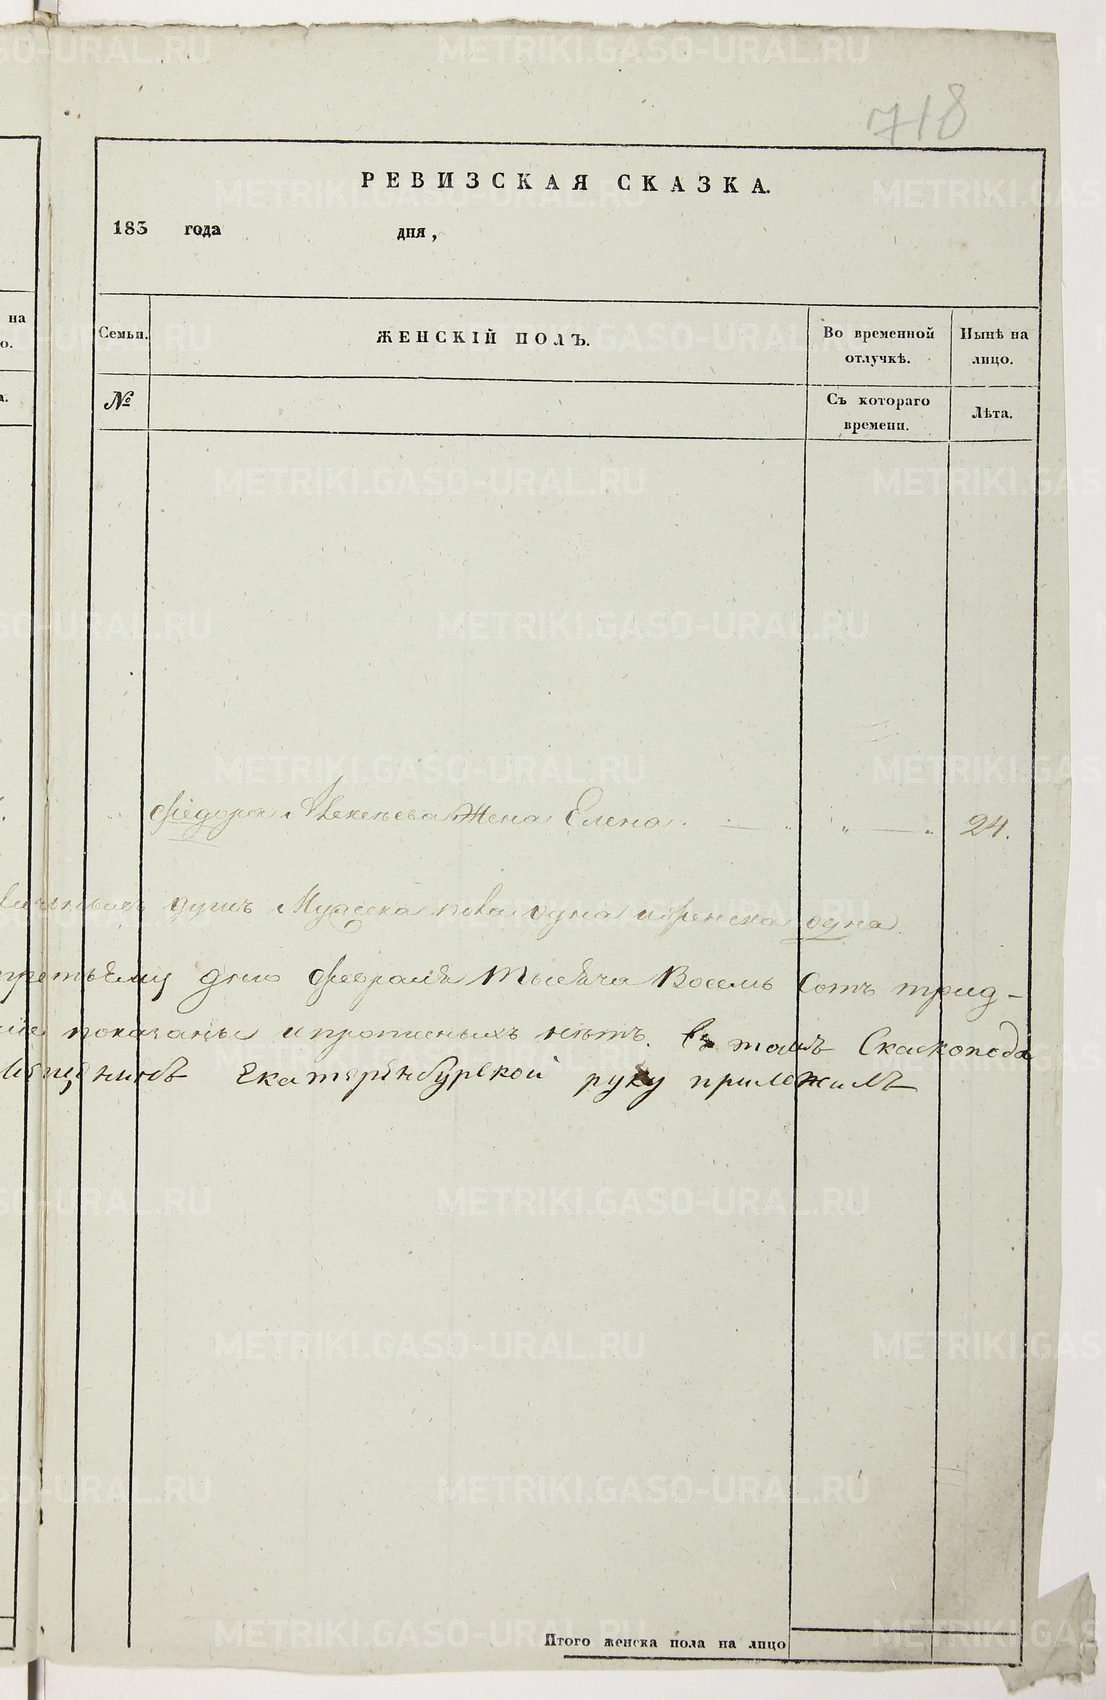 718
РЕВИЗСКАЯ СКАЗКА.
183 года дня,
на
о.
Семьи. ЖЕНСКІЙ ПОЛЪ. Во временной отлучкѣ. Нынѣ на лицо.
№ Съ котораго времени. Лѣта.
а.
Федора Авекеева Жена Елена. 24.
душъ Мужеска пола одна и женска одна.
третьему дню февраля тысеча Восемь Сотъ трид-
показаны и прописныхъ нѣтъ. въ томъ
Екатеринбурской руку приложилъ
Итого женска пола на лицо
METRIKI.GASO-URAL.RU